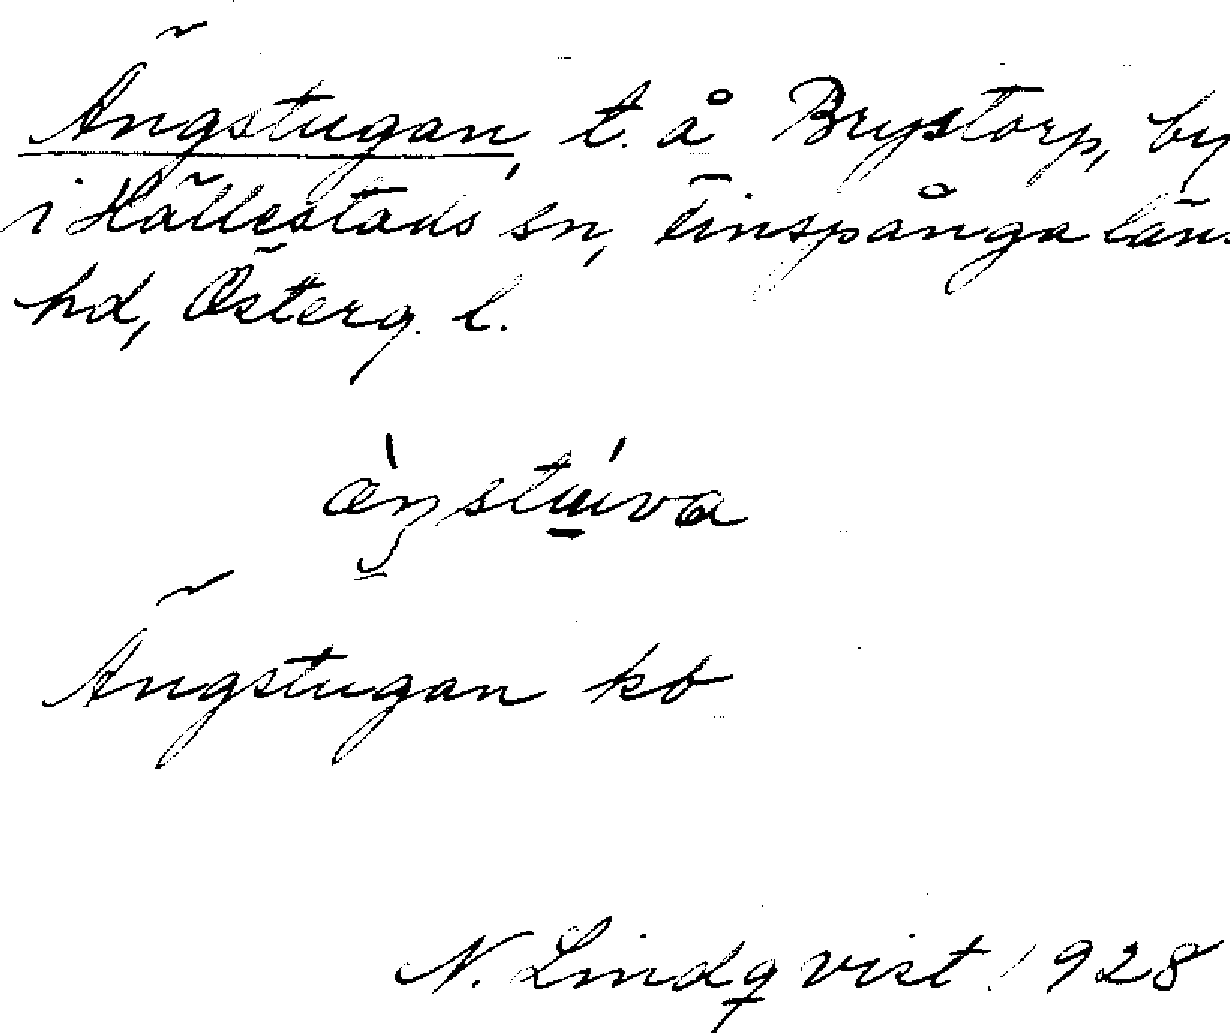 Ängstugan, t. å Brystorp, by
i Hällestads sn, Finspånga läns
hd, Österg. l.
Ängstugan kb
N. Lindqvist 1928